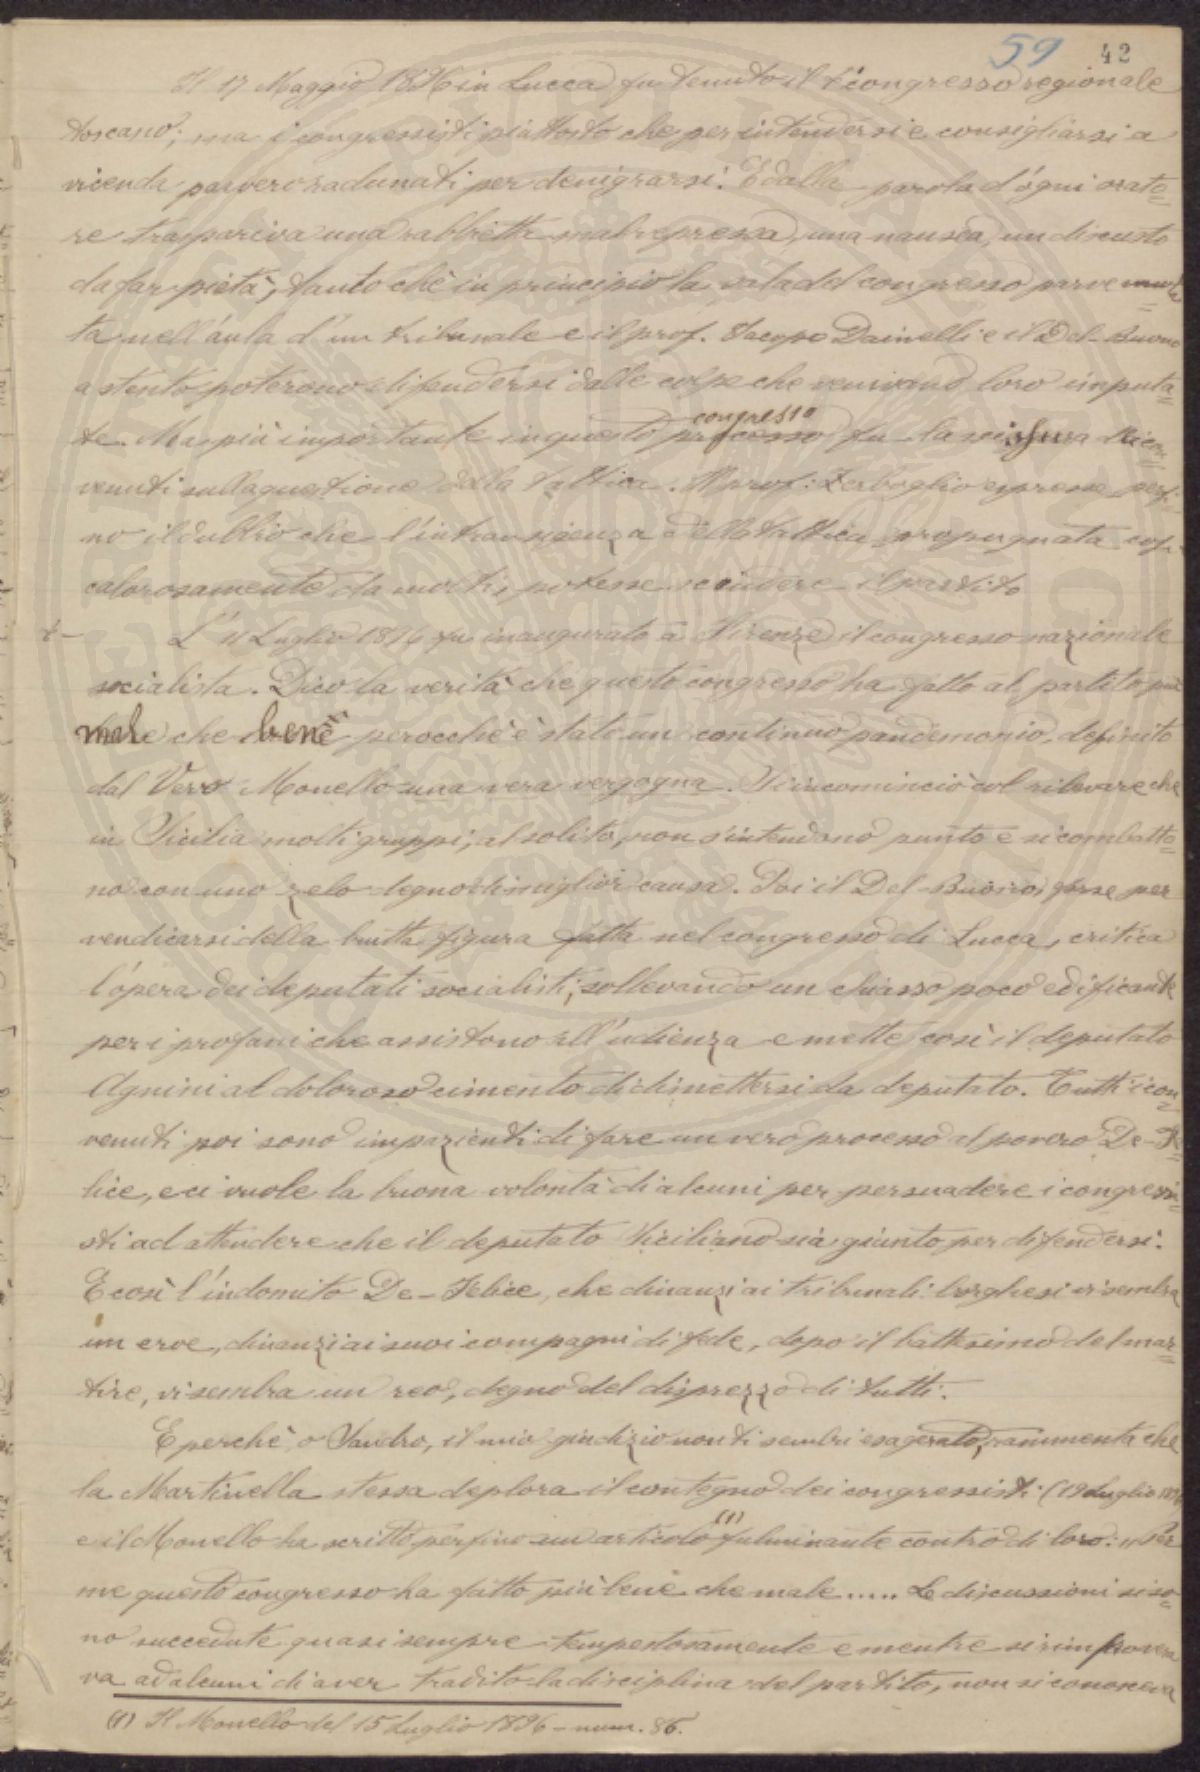 59 42
Il 17 Maggio 1896 in Lucca fu tenuto il 1° congresso regionale
toscano; ma i congressisti piuttosto che per intendersi e consigliarsi a
vicenda parvero radunati per denigrarsi. E dalla parola d'ogni orato=
re traspariva una rabbietta mal repressa, una nausea, un disgusto
da far pietà, tanto chè in principio la sala del congresso parve muta=
ta nell'aula d'un tribunale e il prof. Jacopo Dainelli e il Del-Buono
a stento poterono difendersi dalle colpe che venivano loro imputa=
te. Ma più importante in questo processo congresso fu la scissura dei con=
venuti sulla questione della tattica. Il prof: Zerboglio espresse perfi=
no il dubbio che l'intransigenza della tattica propugnata così
calorosamente da molti, potesse scindere il partito
L'11 Luglio 1896 fu inaugurato a Firenze il congresso nazionale
socialista. Dico la verità che questo congresso ha fatto al partito più
male che bene perocchè è stato un continuo pandemonio, definito
dal Vero Monello una vera vergogna. Si incominciò col rilevare che
in Sicilia molti gruppi, al solito, non s'intendono punto e si combatto=
no con uno zelo degno di miglior causa. Poi il Del-Buono, forse per
vendicarsi della brutta figura fatta nel congresso di Lucca, critica
l'opera dei deputati socialisti, sollevando un chiasso poco edificante
per i profani che assistono all'udienza e mette così il deputato
Agnini al doloroso cimento di dimettersi da deputato. Tutti i con=
venuti poi sono impazienti di fare un vero processo al povero De-Fe=
lice, e ci vuole la buona volontà di alcuni per persuadere i congressi=
sti ad attendere che il deputato Siciliano sia giunto per difendersi.
E così l'indomito De-Felice, che dinanzi ai tribunali borghesi vi sembra
un eroe, dinanzi ai suoi compagni di fede, dopo il battesimo del mar=
tire, vi sembra un reo, degno del disprezzo di tutti.
E perchè, o Sandro, il mio giudizio non ti sembri esagerato, rammenta che
la Martinella stessa deplora il contegno dei congressisti (19 Luglio 1896)
e il Monello ha scritto perfino un articolo (1) fulminante contro di loro: "Per
me questo congresso ha fatto più bene che male..... Le discussioni si so=
no succedute quasi sempre tempestosamente e mentre si rimprovera
va ad alcuni di aver tradito la disciplina del partito, non si conosceva
(1) Il Monello del 15 Luglio 1896 - num. 86.